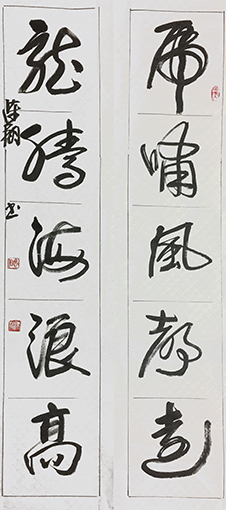 虎啸風聲遠
龍騰海浪高